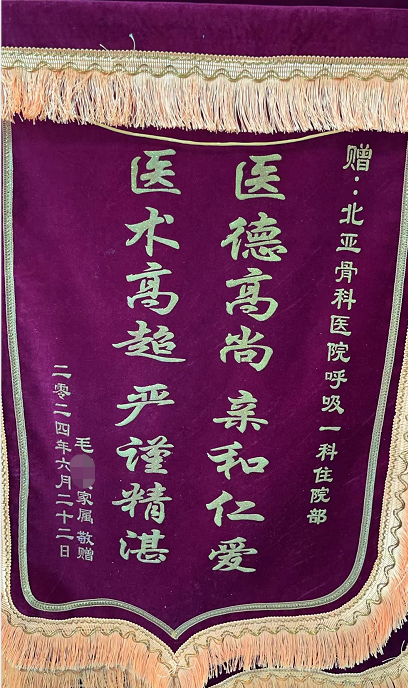 赠：北亚骨科医院呼吸一科住院部
医德高尚 亲和仁爱
医术高超 严谨精湛
毛 家属 敬赠
二零二四年六月二十二日